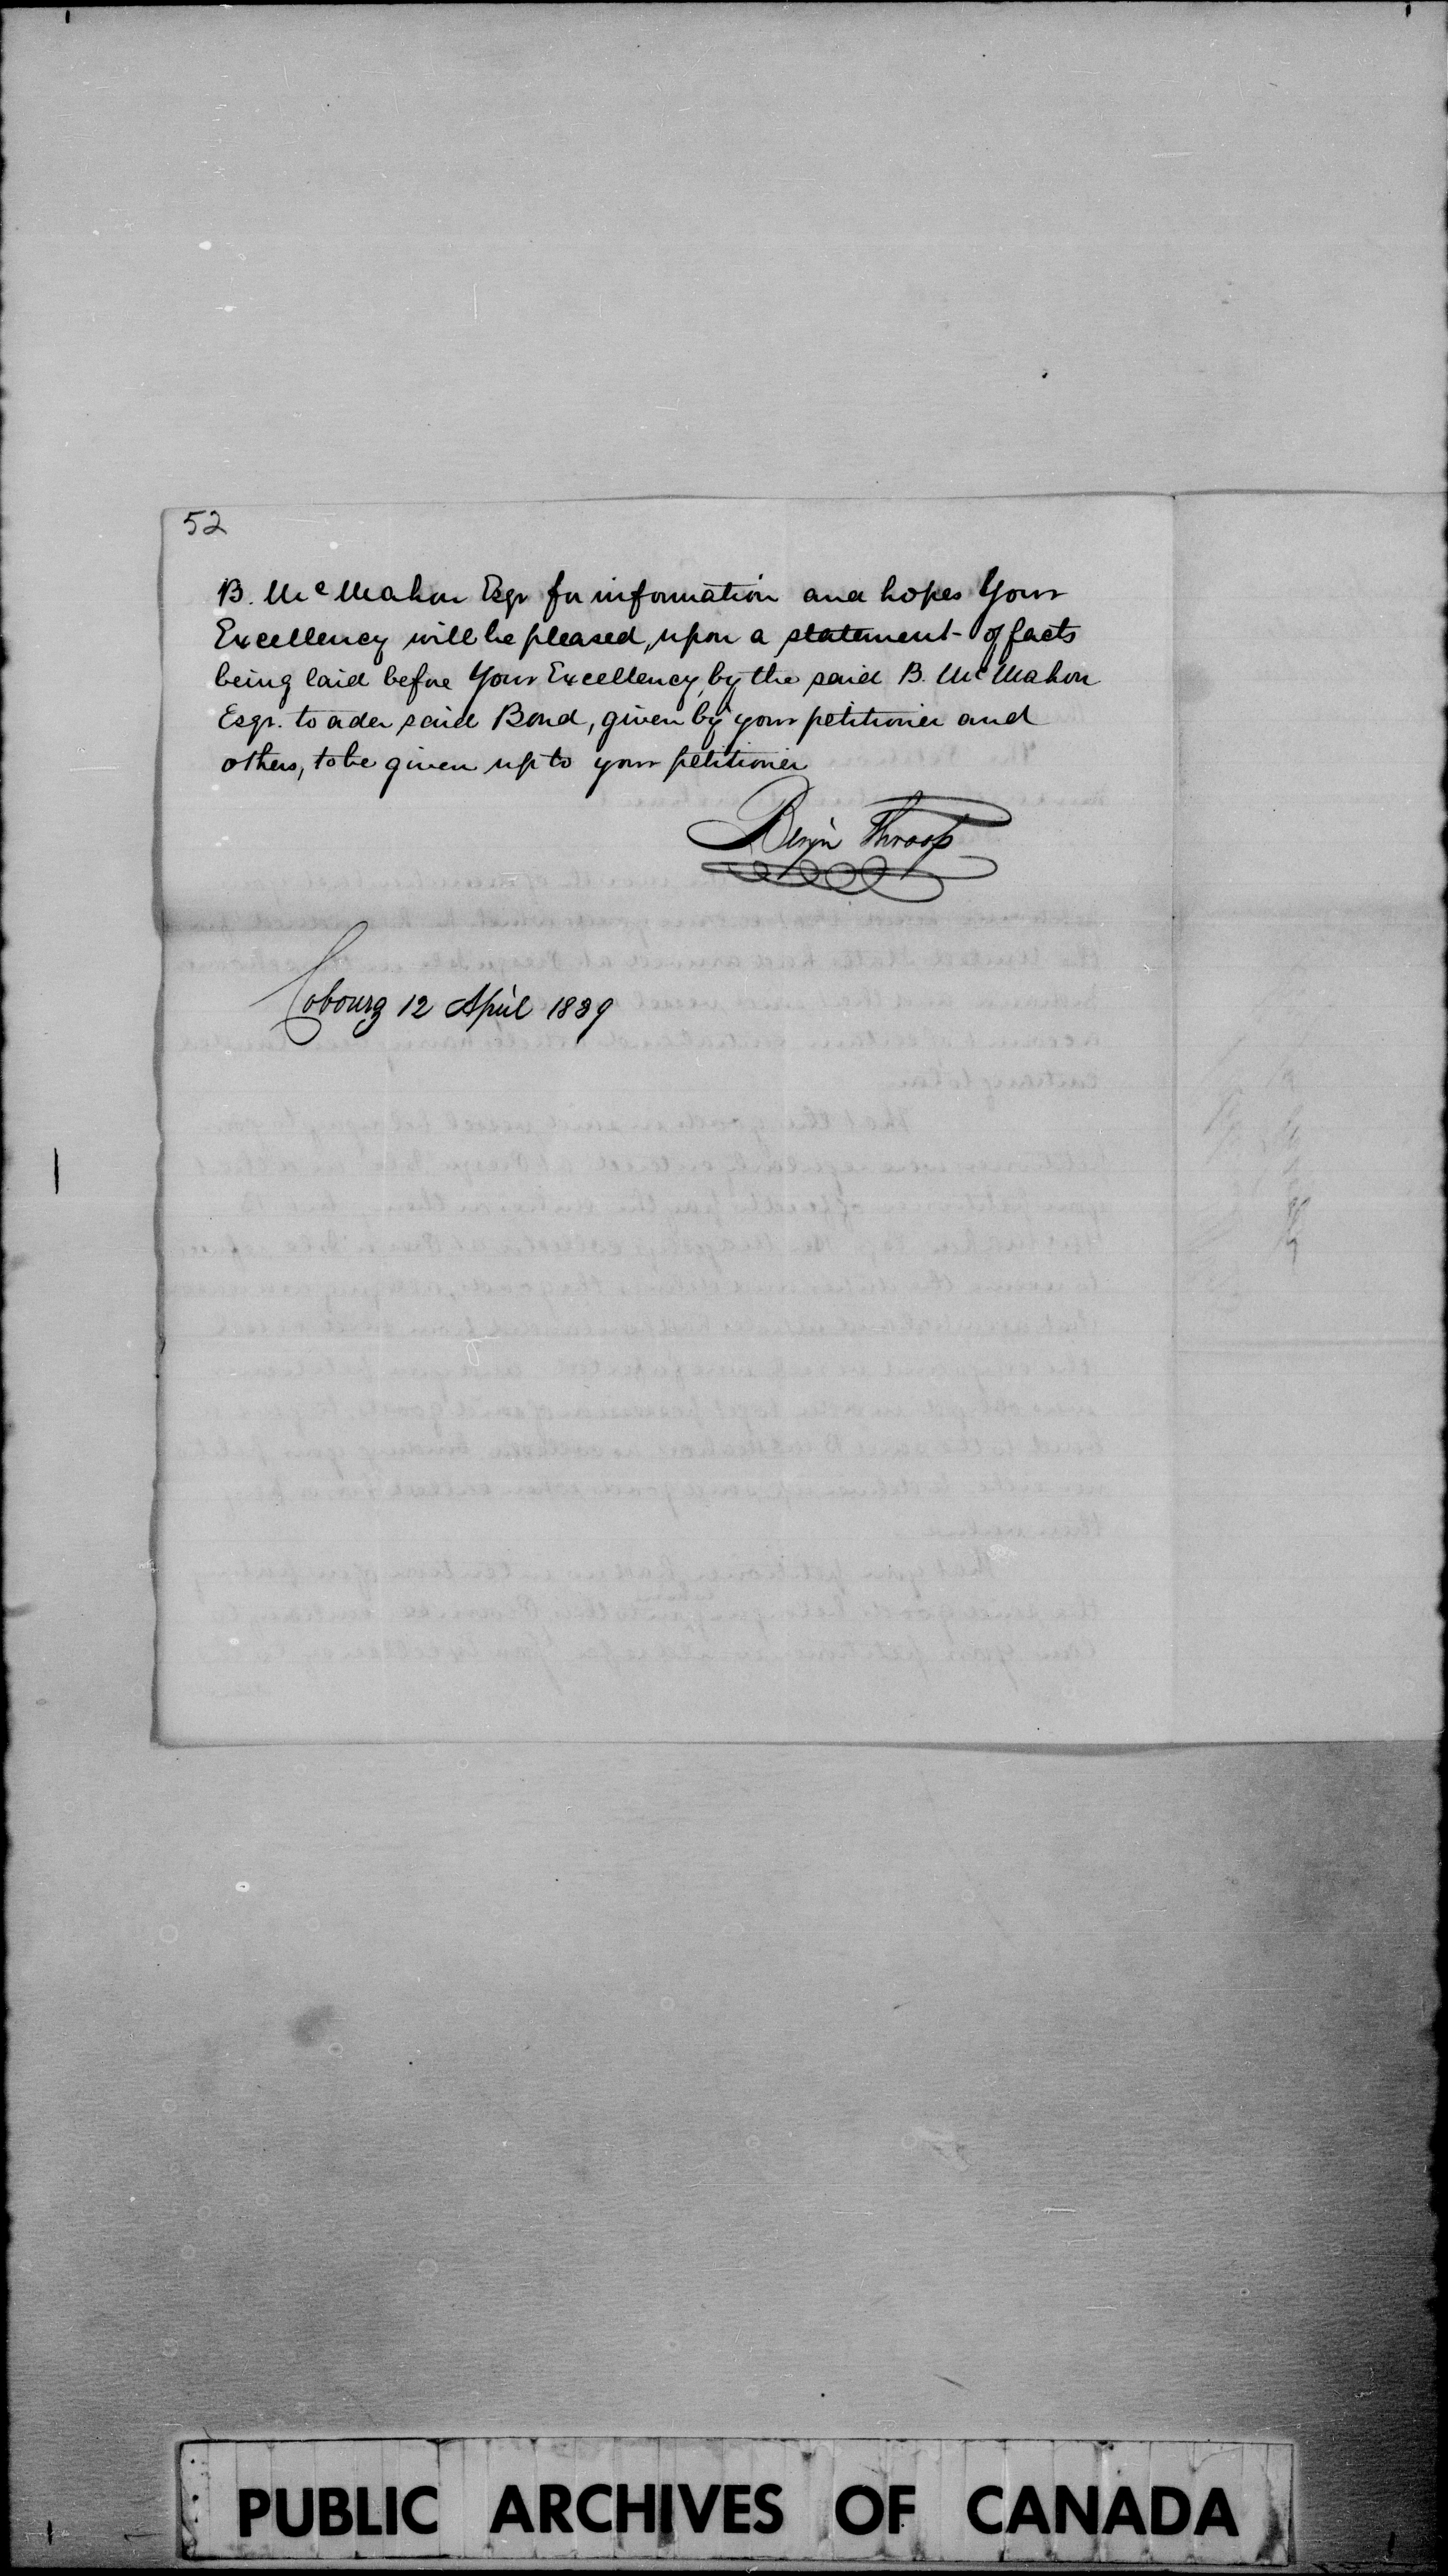 52
B. McMahon Esqr for information and hopes Your
Excellency will be pleased, upon a statement of facts
being laid before Your Excellency, by the said B. McMahon
Esqr. to order said Bond, given by your petitioner and
others, to be given up to your petitioner
Benjn Throop
Cobourg 12 April 1839
PUBLIC ARCHIVES OF CANADA